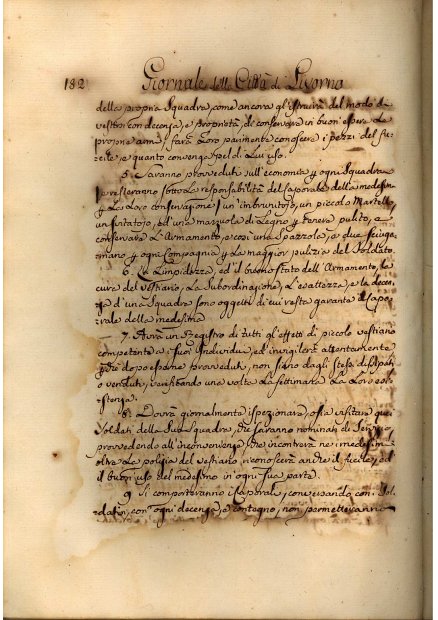 182 Giornale della Città di Livorno
della propria Squadra, come ancora gl'istruirà del modo di
vestir con decenza, e proprietà, di conservare in buon essere le
proprie armi, farà loro parimente conoscere i pezzi del fu-
cile, e quanto convenga pel di lui uso.
5. Saranno provveduti sull'economia ogni Squadra
resteranno sotto la responsabilità del Caporale della medesima
la loro conservazione un imbrunitojo, un piccolo Martello
un ed una mazzuola di Legno tenere pulito, e
conservare l'Armamento, e così una Spazzola, e due
mano ogni Compagnia la maggior pulizia del Soldato.
6. La Limpidezza, ed il buono stato dell'Armamento, la
cura del vestiario, la Subordinazione, l'esattezza, e la decen-
za d'una Squadra sono oggetti di cui resta garante il Capo-
rale della medesima
7. Avrà un Registro di tutti gl'effetti di piccolo vestiario
competente a' suoi Individui, ed invigilerà attentamente
che dopo esserne provveduti, non siano dagli stessi dissipati
o venduti, verificando una volta la settimana la loro esi-
stenza.
8. Dovrà giornalmente ispezionare, o sia visitare que'
Soldati della sua Squadra, che saranno nominati di Servizio,
provvedendo all'inconvenienze, che incontrerà ne' medesimi
oltre la polizia del vestiario, riconoscerà anche il fucile, ed
il buon uso del medesimo in ogni sua parte.
9. Si comporteranno i Caporali, conversando con Sol-
dati, con ogni decenza, e contegno, non permetteranno